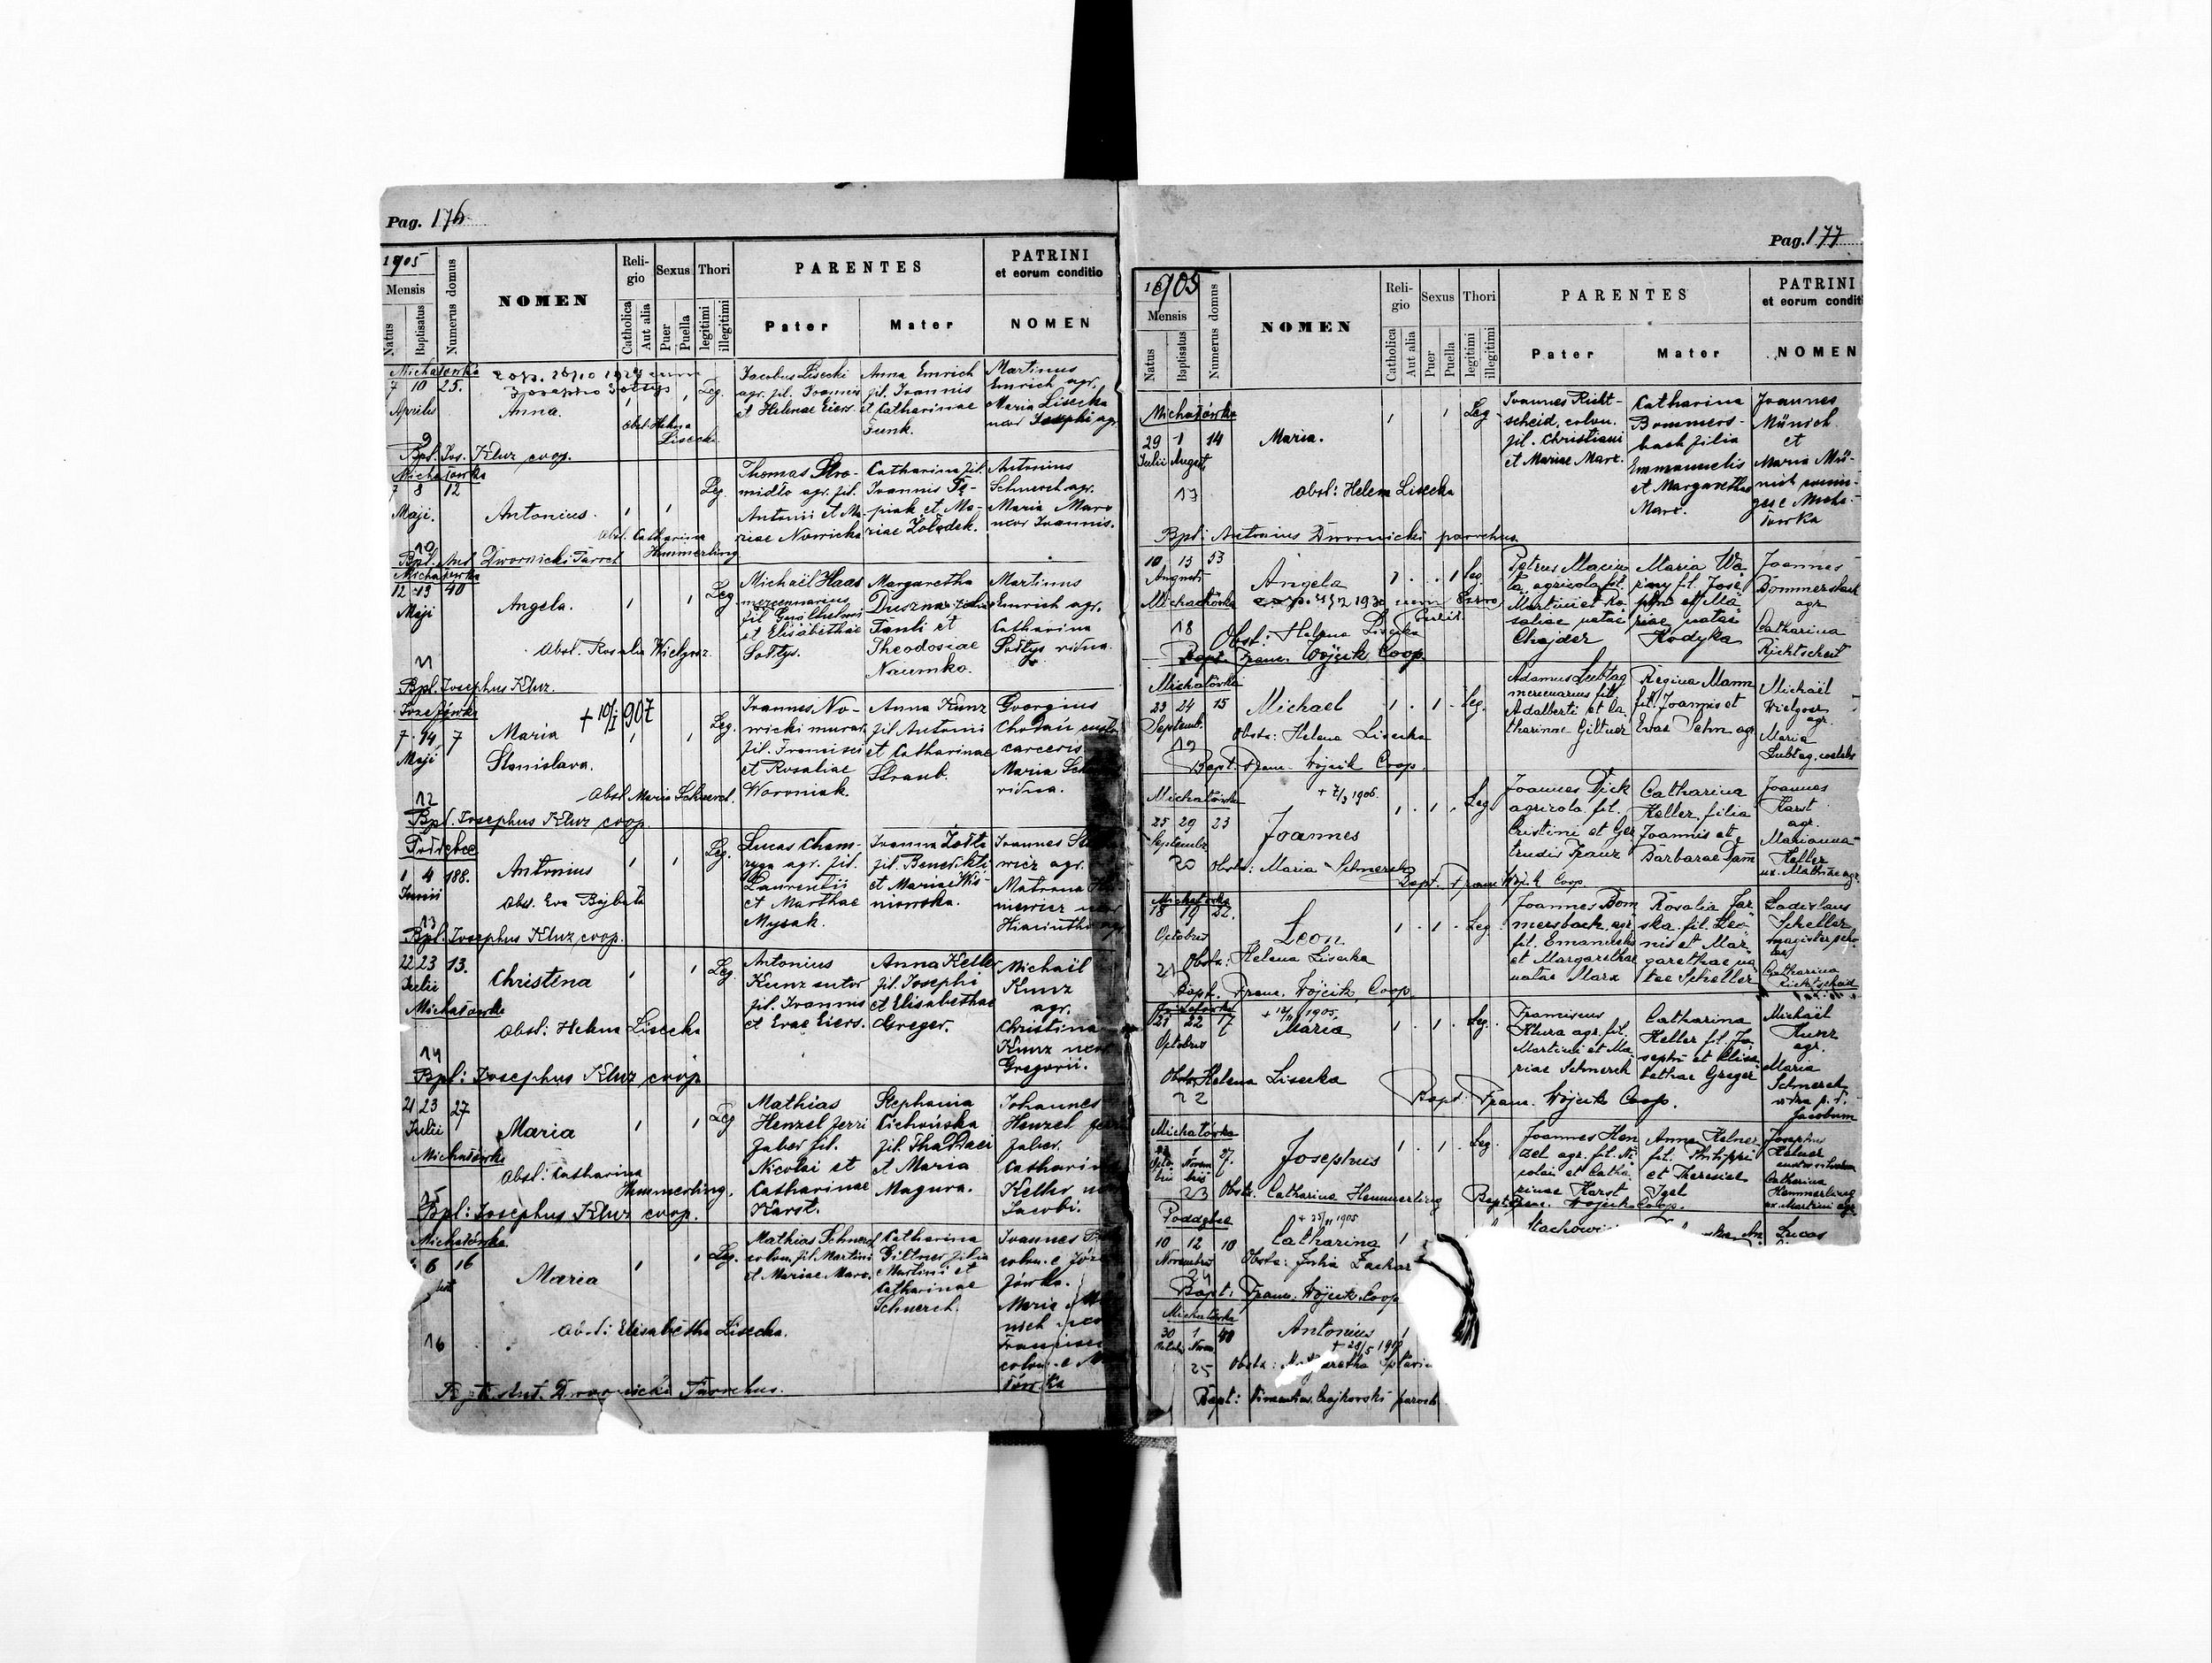 Pag. 176
1905
Mensis
Natus
Baptisatus
Numerus domus
NOMEN
Reli-
gio
Catholica
Aut alia
Sexus
Puer
Puella
Thori
legitimi
illegitimi
PARENTES
Pater
Mater
PATRINI
et eorum conditio
NOMEN
Michałówka
7 10 25.
Aprilis
Anna.
Obst. Helena
Lisecki
Leg.
Jacobus Lisecki
agr. fil. Ioannis
et Helenae Eiers.
Anna Emrich
fil. Ioannis
et Catharinae
Funk.
Martinus
Emrich agr.
Maria Lisecka
uxor Josephi agr.
9
Bpl. Jos. Kluz coop.
Michałówka
7 8 12
Maji.
Antonius.
Obst. Catharina
Hemmerling
Leg.
Thomas Stro-
midło agr. fil.
Antonii et Ma-
riae Nowicka
Catharina fil.
Ioannis Tę-
piak et Ma-
riae Żołądek.
Antonius
Schnerch agr.
Maria Marx
uxor Ioannis.
10
Bpl. Ant. Dwornicki Paroch
Michałówka
12 13 40
Maji
Angela.
Obst. Rosalia Wielgosz.
Leg.
Michaël Haas
mercenarius
fil. Guilhelmi
et Elisabethae
Sołtys.
Margaretha
Duszna filia
Panli et
Theodosiae
Naumko.
Martinus
Emrich agr.
Catharina
Sołtys vidua.
11
Bpl. Josephus Kluz.
Józefówka
7 14 7
Maji
Maria
Stanislava.
+ 10/I 907
Obst. Maria Schnerch.
Leg.
Ioannes No-
wicki murar.
fil. Francisci
et Rosaliae
Woroniak.
Anna Kunz
fil. Antonii
et Catharinae
Straub.
Georgius
carceris
Maria
vidua.
12
Bpl. Josephus Kluz coop.
Poddębce
1 4 188.
Junii
Antonius
Obst. Eva Bajbała
Leg.
Lucas Cham-
ryga agr. fil.
Laurentii
et Marthae
Mysak.
Ioanna Żołta
fil. Benedicti
et Mariae Wis-
niowska.
Ioannes
wicz agr.
Matrona
niewicz uxor
Hiacinthi
13
Bpl. Josephus Kluz, coop.
22 23 13.
Julii
Michałówka
Christina
Obst: Helena Lisecka
Leg.
Antonius
Kunz sutor
fil. Ioannis
et Evae Eiers.
Anna Keller
fil. Josephi
et Elisabethae
Greger.
Michaël
Kunz
agr.
Christina
Kunz uxor
Gregorii.
14
Bpl: Josephus Kluz coop
21 23 27
Julii
Michałówka
Maria
Obst: Catharina
Hemmerling.
Leg
Mathias
Henzel ferri
faber fil.
Nicolai et
Catharinae
Karst.
Stephania
Cichońska
fil. Thaddaei
et Maria
Magura.
Iohannes
Henzel ferri
faber.
Catharina
Keller
Jacobi.
15
Bpl: Josephus Kluz coop.
Michałówka
6 16
Maria
Obst: Elisabetha Lisecka.
Leg.
Mathias Schnerch
colon. fil. Martini
et Mariae Marx.
Catharina
Giltner filia
Martini et
Catharinae
Schnerch.
Ioannes
colon. e Józe
fówka.
Maria
nich uxor
Francisci
colon. e
łówka
16
Bapt. Ant. Dwornicki Parochus.
Pag. 177
1905
Mensis
Natus
Baptisatus
Numerus domus
NOMEN
Reli-
gio
Catholica
Aut alia
Sexus
Puer
Puella
Thori
legitimi
illegitimi
PARENTES
Pater
Mater
PATRINI
et eorum conditi
NOMEN
Michałówka
29 1 14
Julii August.
Maria.
Obst: Helena Lisecka
Leg
Ioannes Rickt-
scheid, colon.
fil. Christiani
et Mariae Marx.
Catharina
Bommers-
bach filia
Emmanuelis
et Margarethae
Marx.
Joannes
Münich
et
Maria Mü-
nich coniu-
ges e Micha-
łówka
17
Bpl: Antonius Dwornicki parochus.
10 13 53
Augusti
Michałówka
Angela
Leg.
Petrus Maciu
ła agricola fil.
Martini et Ro
saliae natae
Chajder
Maria Wa
rzny fil. Jose
phi et Ma
riae natae
Kodyka
Joannes
Bommersbach
agr
Catharina
Ricktscheit
18
Obst: Helena Lisecka
Bapt. Franc. Wójcik Coop.
Michałówka
23 24 15
Septemb.
Michael
Obstx: Helena Lisecka
Leg.
Adamus Lubtag
mercenarius fil.
Adalberti et Ca
tharinae Giltner
Regina Mann
fil. Joannis et
Evae Sehn agr
Michaël
Wielgosz
agr.
Maria
Lubtag, coelebs
19
Bapt. Franc. Wójcik Coop.
Michałówka
25 29 23
Septembr.
+ 7/3 1906.
Joannes
Leg
Joannes Dick
agricola fil.
Cristini et Ger
trudis Franz
Catharina
Keller, filia
Joannis et
Barbarae Dam
Joannes
Karst
agr.
Marianna
Keller
ux. Mathiae agr.
20
Obstx: Maria Schnerch
Bapt. Franc. Wójcik Coop.
Michałówka
18 19 22.
Octobris
Leon
Obstx: Helena Lisecka
Leg.
Joannes Bom
mersbach, agr.
fil. Emanuelis
et Margarethae
natae Marx
Rosalia Jar
ska fil. Leo
nis et Mar
garethae na
tae Scheller
Ladislaus
Scheller
magister scho
lae
Catharina
Ricktscheid
21
Bapt. Franc. Wójcik, Coop.
Józefówka
21 22 17
Octobris
Maria
Obstx Helena Lisecka
Leg.
Franciscus
Klura agr. fil.
Martini et Ma
riae Schnerch
Catharina
Keller fil. Jo
sephi et Elisa
bethae Greger
Michaël
Kunz
agr.
Maria
Schnerch
vidua p. d.
Jacobum
22
Bapt. Franc. Wójcik Coop.
Michałówka
1 27.
Octo Novem
bris bris
Josephus
Leg.
Joannes Hen
zel agr. fil. Ni
colai et Catha
rinae Karst
Anna Kelner
fil. Philippi
et Theresiae
Igel
Josephus
Kelner
Catharina
Hemmerling
ux. Martini agr.
23
Obstx. Catharina Hemmerling
Bapt. Franc. Wójcik Coop.
Poddębce
10 12 10
Novembris
+ 25/11 1905
Catharina
Obstx: Julia Zachar
Stachowi
Lucas
24
Bapt. Franc. Wójcik Coop
Michałówka
30 1 40
Octob. Novem.
Antonius
Obstx: Margaretha
25
Bapt: Vincentius Czajkowski paroch